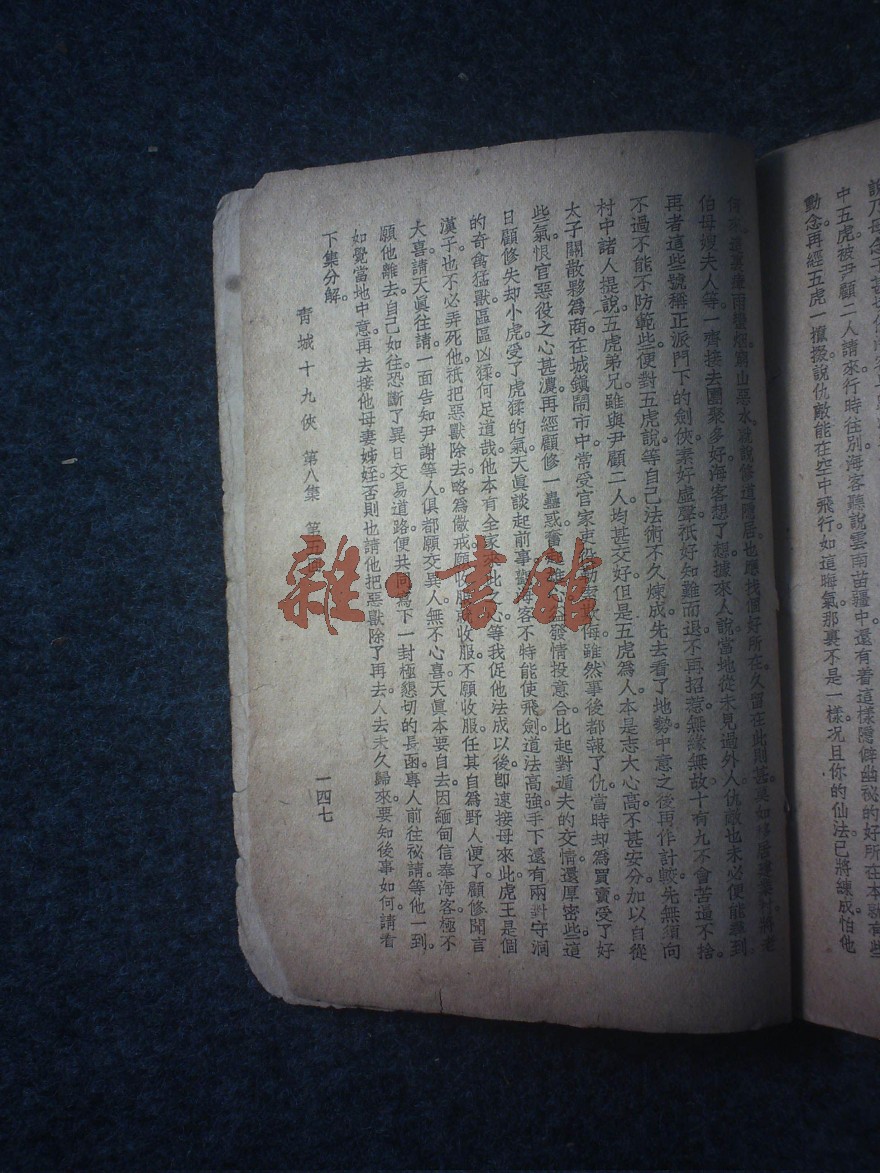 中五虎被尹顧二人請來行時往別海客聽說雲南苗疆中還有着這樣隱僻幽祕的好所在本就有些
動念再經五虎一攛掇說仇敵能在空中飛行如這晦氣那裏不是一樣况且你的仙法已將練成怕他
窮山惡水就說修道隱居也應找個好所在久留在此則甚
伯母嫂夫人等一齊接去團聚多好海客想了想據來人說當地從未見過外人仇敵也未必便能尋到
再者這些號稱正派門下的劍俠素好虛聲祇好知難而退不再招惹無緣無故十有九不會苦追不捨
不過不能不防範些便對五虎說等自己法術不久煉成先去看了地勢中意之後再作計較先無須向
村中諸人提說五虎弟兄雖與尹顧二人均甚交好但是五虎爲人本是志大心高不甚安分加以自從
太子關散夥爲商在城鎮鬧市中常受官家吏役勒索欺侮雖然事後都報了仇當時却爲買賣受了好
些氣恨官惡役之心甚濃再經顧修一蠱惑 益發情投意合比起對遁夫的交情還厚密些這
日顧修失却小虎受了虎猱的氣天眞談起前事 海客不特能使飛劍道法高強手下還有兩對守洞
的奇禽猛獸區區凶猱何足道哉他本有全家 此之心等我促他法成以後卽速接母來此虎王是個
漢子也不必弄死他祇把惡獸除去略爲儆戒願收服 收服不願收服任其自爲野人便了顧修聞言
大喜請天眞往請一面告知尹謝等人俱都願交異人無不心喜天眞本要自去因緬甸信奉海客極不
願他離去自己如往恐斷了異日交易道路便共同寫下一封極懇切的長函專人前往祕請等他一到
如覺當地中意再去接他母妻姊姪否則也請他把惡獸除了再去人去未久歸來要知後事如何請看
下集分解。
青城十九俠 第八集 第 一四七
雜·書館